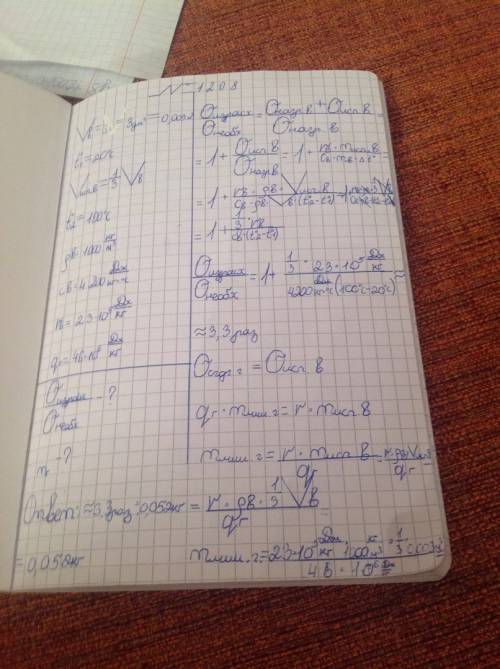 N 1208
Vв = 3л = 3дм³ = 0,003м³
t₁ = 20°C
Vисп.в = 1/3 Vв
t₂ = 100°C
ρв = 1000 кг/м³
cв = 4200 Дж/кг·°C
r = 2,3·10⁶ Дж/кг
qг = 46·10⁶ Дж/кг
Qизрасх / Qнеобх - ?
m - ?
Qизрасх / Qнеобх = (Qнагр.в + Qисп.в) / Qнагр.в =
= 1 + Qисп.в / Qнагр.в = 1 + rв·mисп.в / cв·mв·Δt =
= 1 + rв·ρв·Vисп.в / cв·ρв·Vв·(t₂-t₁) =
= 1 + 1/3·rв / cв·(t₂-t₁)
Qизрасх / Qнеобх = 1 + 1/3·2,3·10⁶ Дж/кг / 4200 Дж/кг·°C (100°C-20°C) ≈
≈ 3,3 раз
Qсгор.г = Qисп.в
qг·mлиш.г = r·mисп.в
mлиш.г = r·mисп.в / qг = r·ρв·Vисп.в / qг
= r·ρв·1/3 Vв / qг
mлиш.г = 2,3·10⁶ Дж/кг · 1000 кг/м³ · 1/3 · 0,003м³ / 46·10⁶ Дж/кг
= 0,050кг
Ответ: ≈ 3,3 раз; 0,052кг